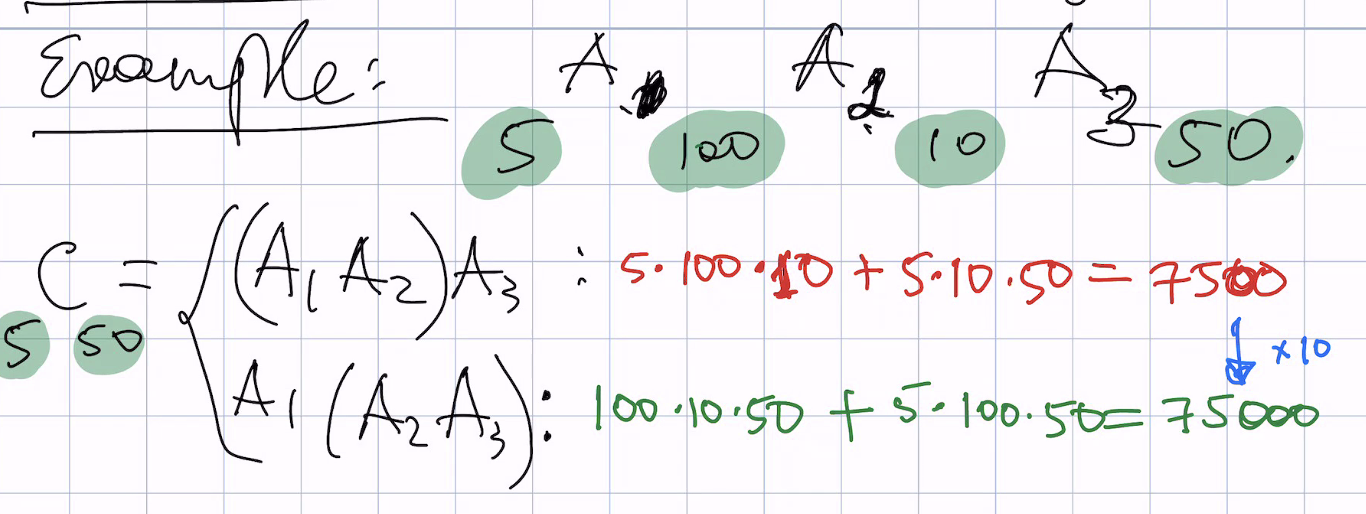 Example: A₁ A₂ A₃
5 100 10 50.
C = { (A₁ A₂) A₃ : 5·100·10 + 5·10·50 = 7500
5 50 ↓ ×10
A₁ (A₂ A₃) : 100·10·50 + 5·100·50 = 75000